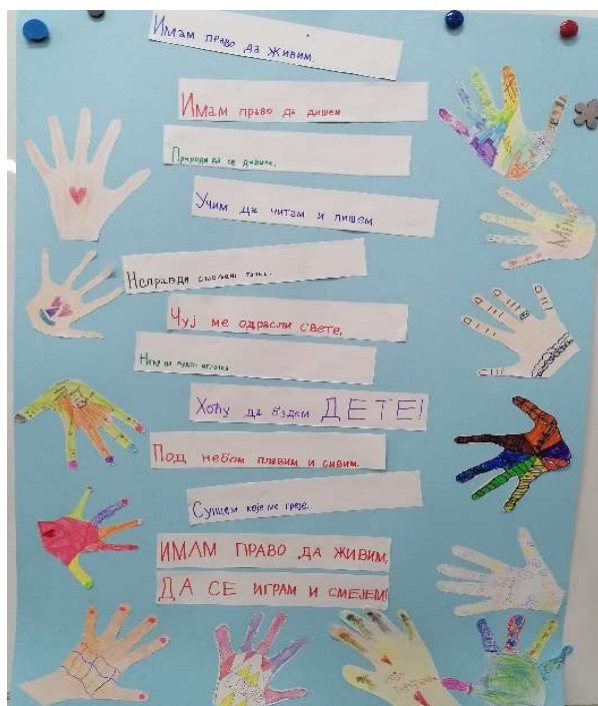 Имам право да живим.
Имам право да дишем
Природи да се дивим.
Учим да читам и пишем
Неправди
Чуј ме одрасли свете,
Нећу
Хоћу да будем ДЕТЕ!
Под небом плавим и сивим.
Сунцем које ме греје.
ИМАМ ПРАВО ДА ЖИВИМ,
ДА СЕ ИГРАМ И СМЕЈЕМ!